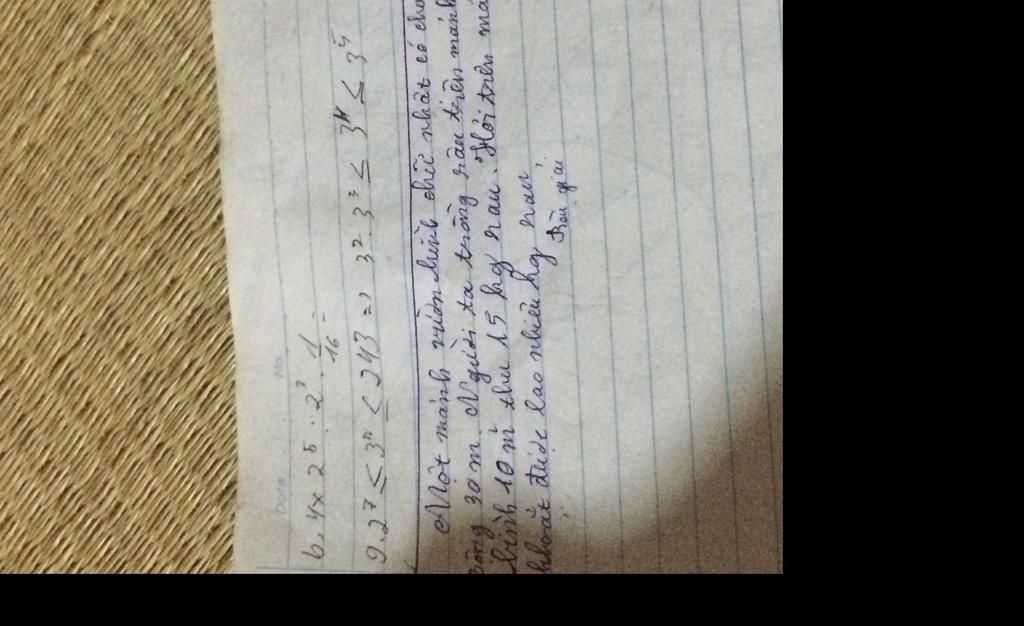 b. 4 × 2⁵ : 2³ . 1/16 =
9.27 ≤ 3ⁿ ≤ 243 => 3² . 3³ ≤ 3ⁿ ≤ 3⁵
Một mảnh vườn hình chữ nhật có
rộng 30 m. Người ta trồng rau trên mảnh
bình 10 m² thu 15 kg rau. Hỏi trên
hoạt được bao nhiêu kg rau
Bài giải